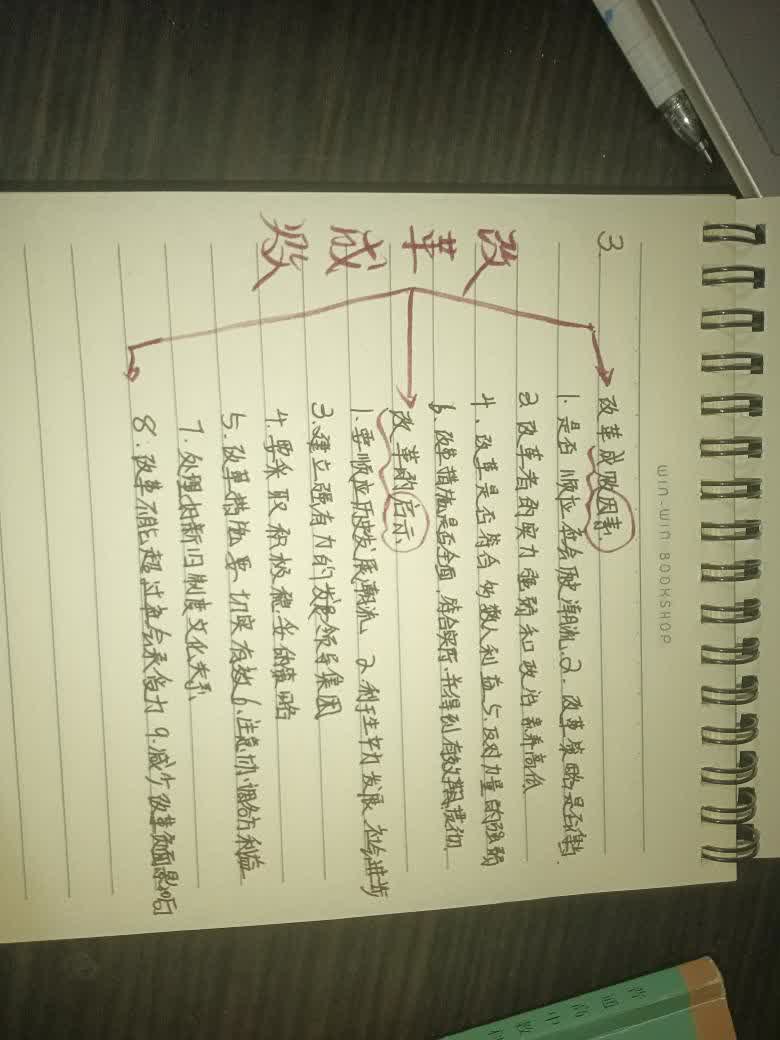 WIN-WIN BOOKSHOP
3
改革成败
改革成败因素
1. 是否顺应社会发展潮流. 2. 改革策略是否得当.
3. 改革者的实力强弱和政治素养高低
4、改革是否符合多数人利益 5. 反对力量的强弱
6. 改革措施是否全面,符合实际,并得到有效贯彻
改革的启示
1. 要顺应历史发展潮流、 2. 利于生产力发展 社会进步
3. 建立强有力的改革领导集团
4. 要采取积极稳妥的策略
5. 改革措施要切实有效 6. 注意协调各方利益
7. 处理好新旧制度文化关系
8. 改革不能超过社会承受力 9. 减少改革负面影响
普通高中教